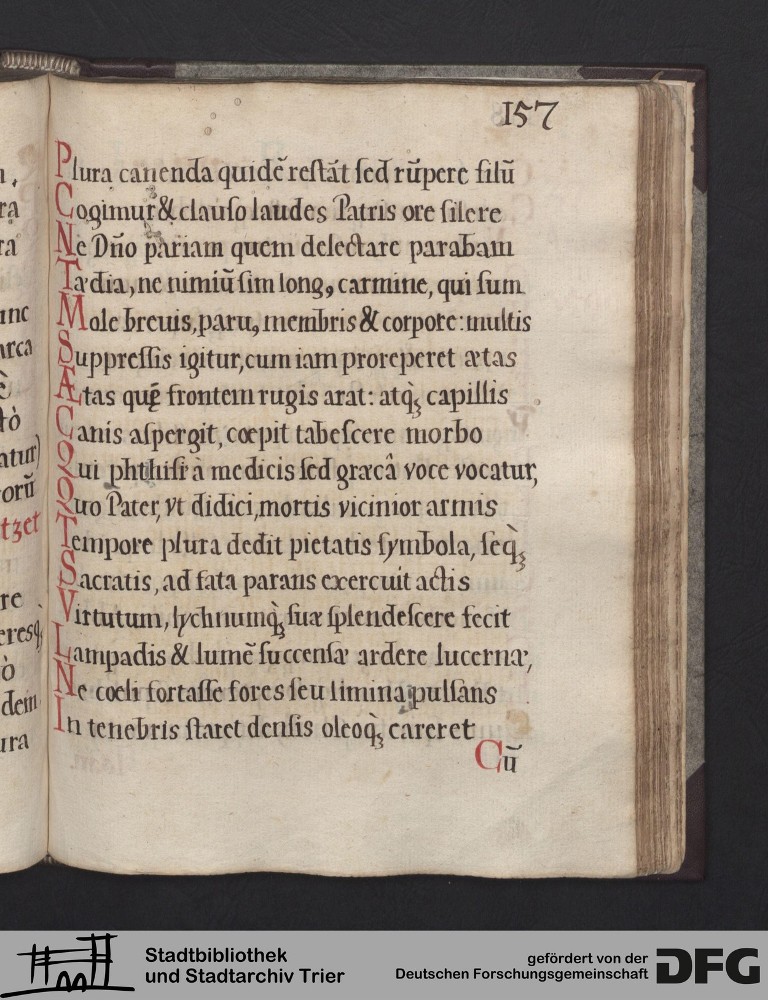 157
Plura canenda quidē restāt sed rūpere filū
Cogimur & clauso laudes Patris ore silere
Ne Dño pariam quem delectare parabam
Tædia, ne nimiū sim long9 carmine, qui sum
Mole breuis, paru9 membris & corpore: multis
Suppressis igitur, cum iam proreperet ætas
Ætas quę frontem rugis arat: atq̀ꝫ capillis
Canis aspergit, cœpit tabescere morbo
Qui phthisi à medicis sed græcâ voce vocatur,
Quo Pater, vt didici, mortis vicinior armis
Tempore plura dedit pietatis symbola, seq̀ꝫ
Sacratis, ad fata parans exercuit actis
Virtutum, lychnumq̀ꝫ suæ splendescere fecit
Lampadis & lumē succensæ ardere lucernæ,
Ne coeli fortasse fores seu limina pulsâns
In tenebris staret densis oleoq̀ꝫ careret
Cū
ra
ra
unc
arca
tò
atur)
orū
tzet
re
eresq̀ꝫ
ò
dem
ura
Stadtbibliothek
und Stadtarchiv Trier
gefördert von der
Deutschen Forschungsgemeinschaft
DFG